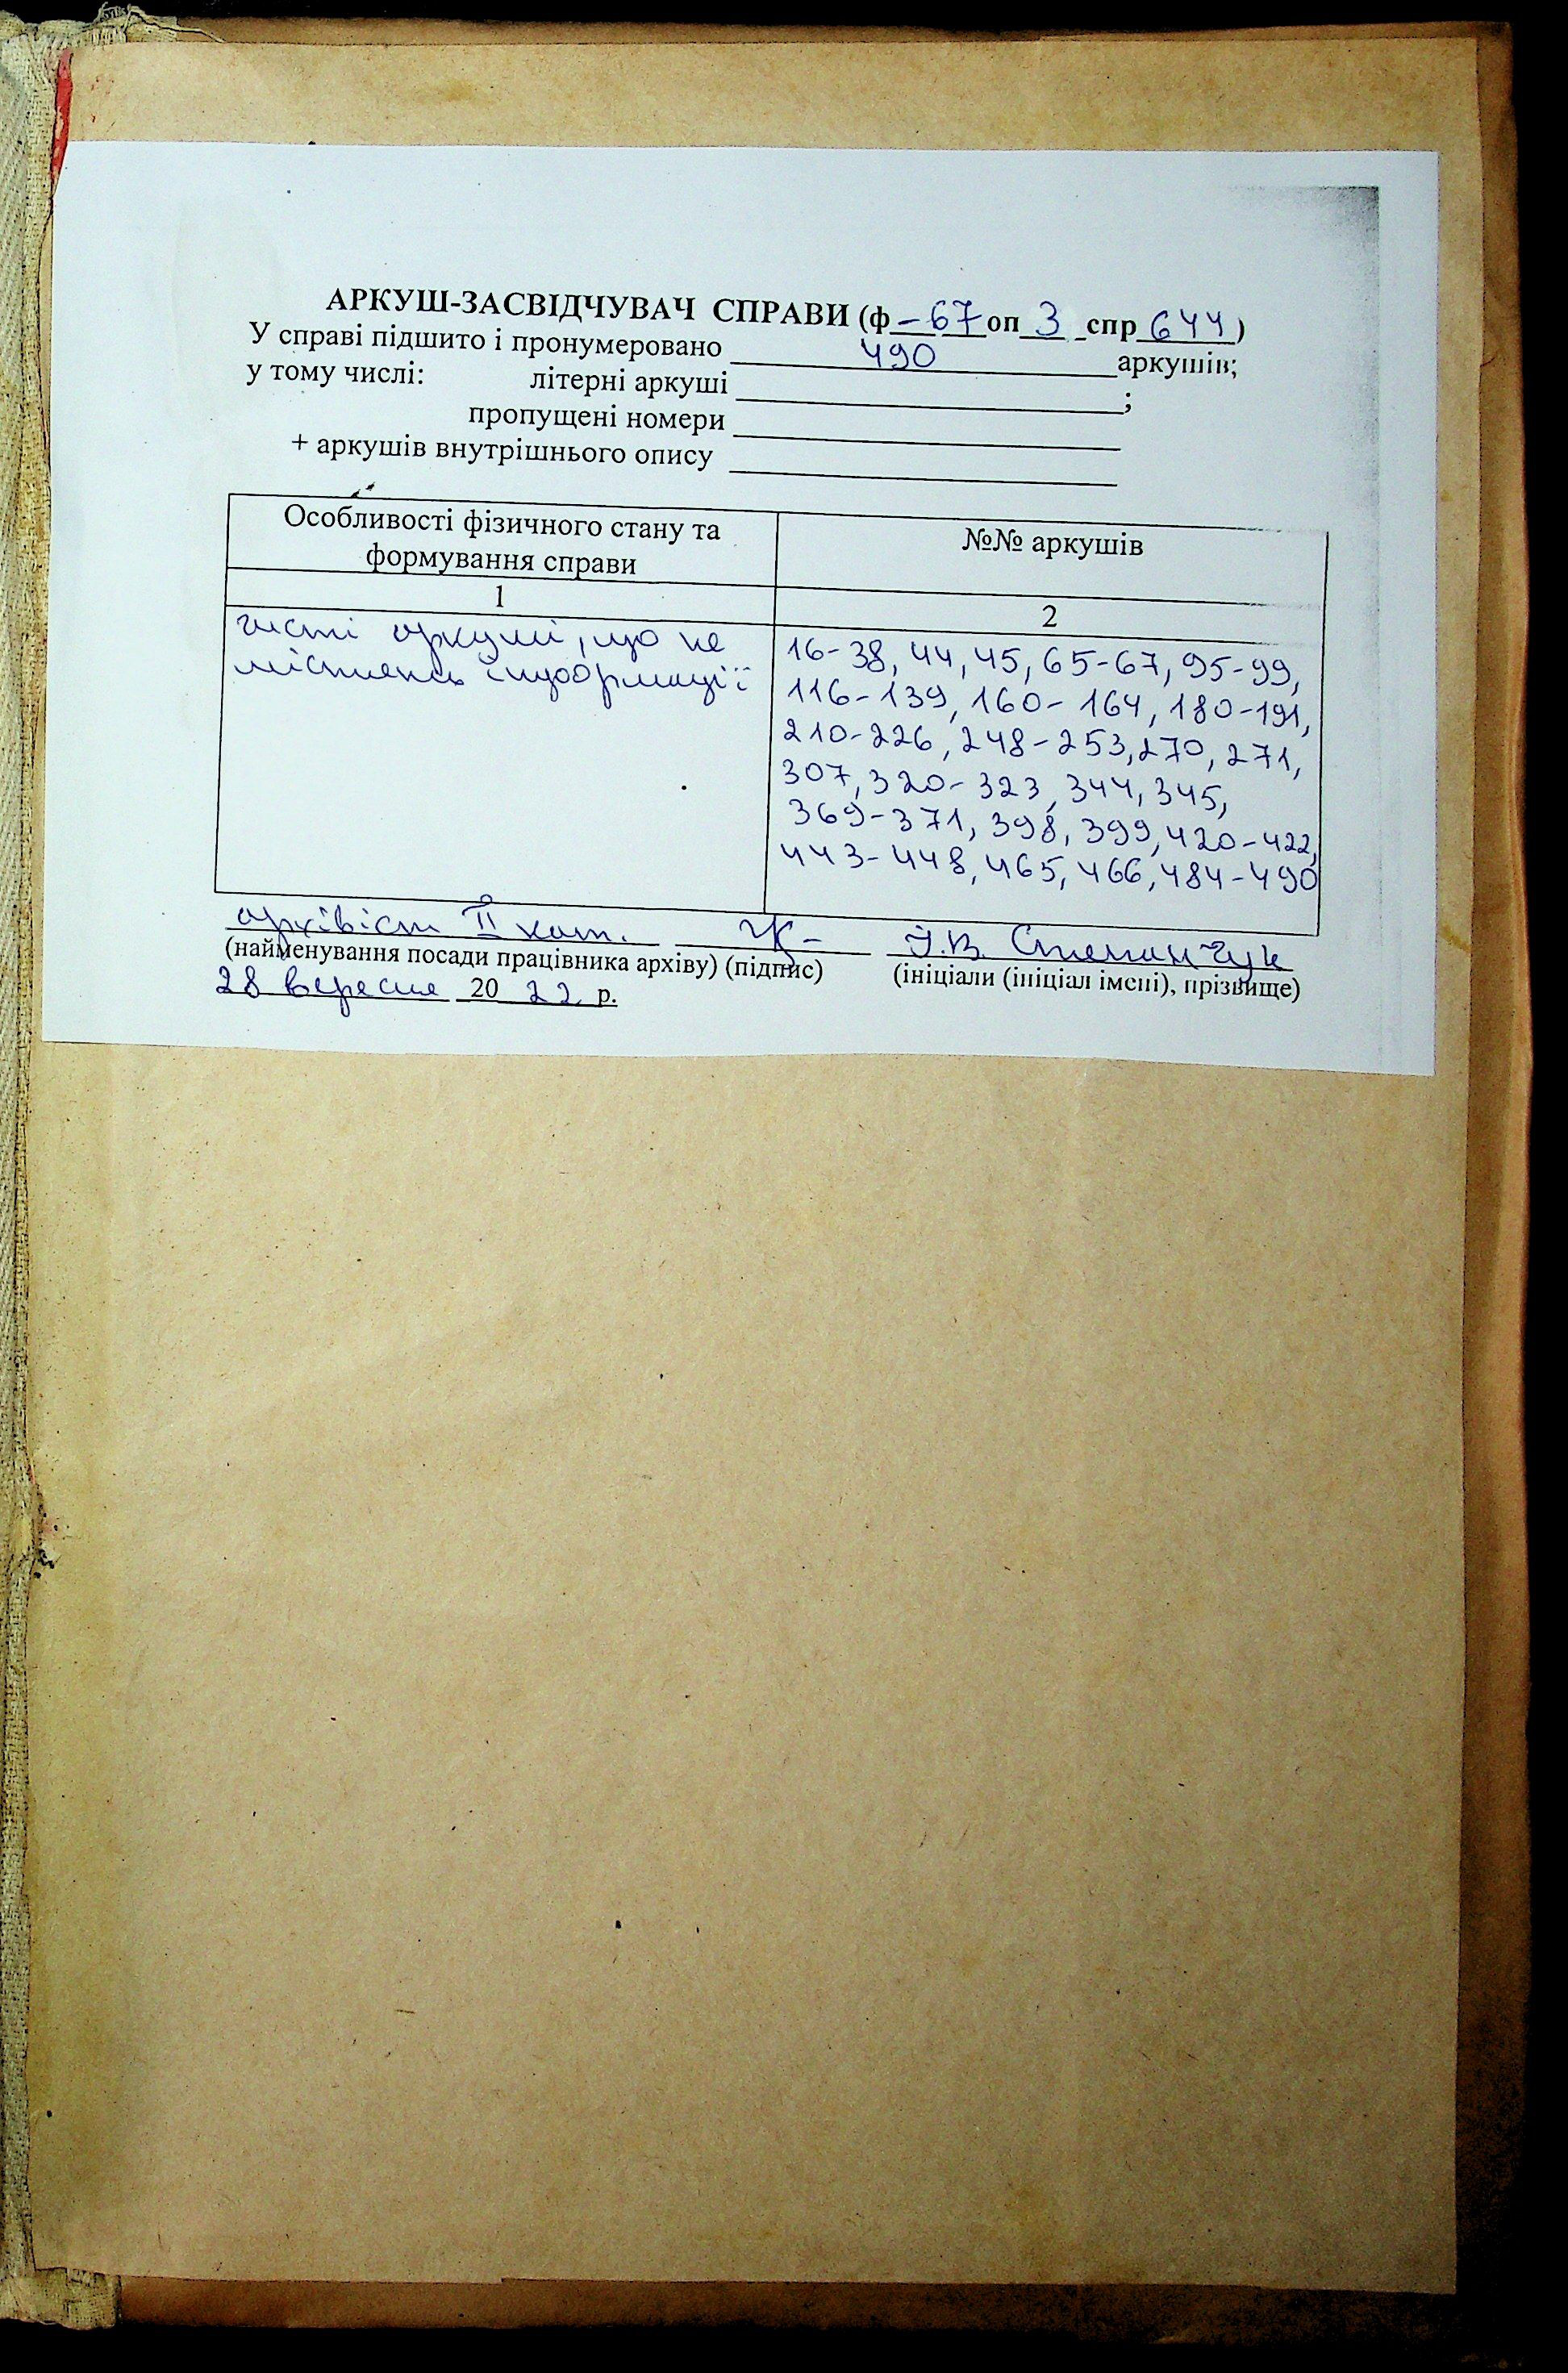 АРКУШ-ЗАСВІДЧУВАЧ СПРАВИ (ф - 67 оп 3 спр 644)
У справі підшито і пронумеровано 490 аркушів;
у тому числі: літерні аркуші ;
пропущені номери
+ аркушів внутрішнього опису
Особливості фізичного стану та
формування справи
№№ аркушів
1
2
чисті аркуші, що не
містять інформації
16-38, 44, 45, 65-67, 95-99,
116-139, 160-164, 180-191,
210-226, 248-253, 270, 271,
307, 320-323, 344, 345,
369-371, 398, 399, 420-422,
443-448, 465, 466, 484-490
архівіст II кат. І.В. Степанчук
(найменування посади працівника архіву) (підпис) (ініціали (ініціал імені), прізвище)
28 вересня 2022 р.